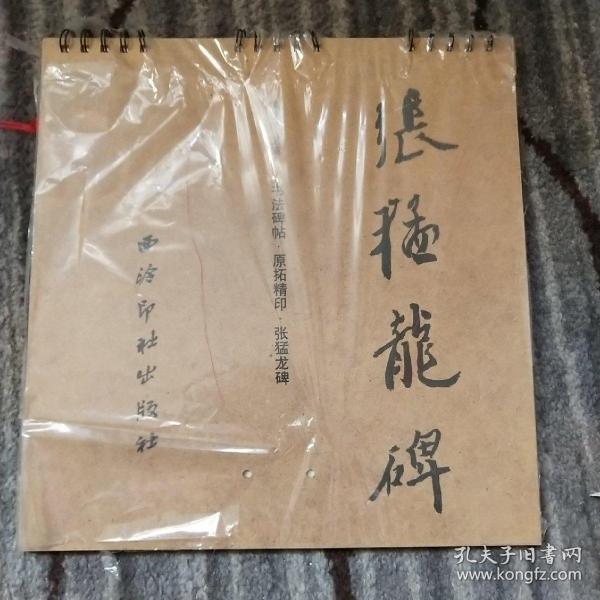 張猛龍碑
法碑帖·原拓精印·张猛龙碑
西泠印社出版社
孔夫子旧書网
www.kongfz.com